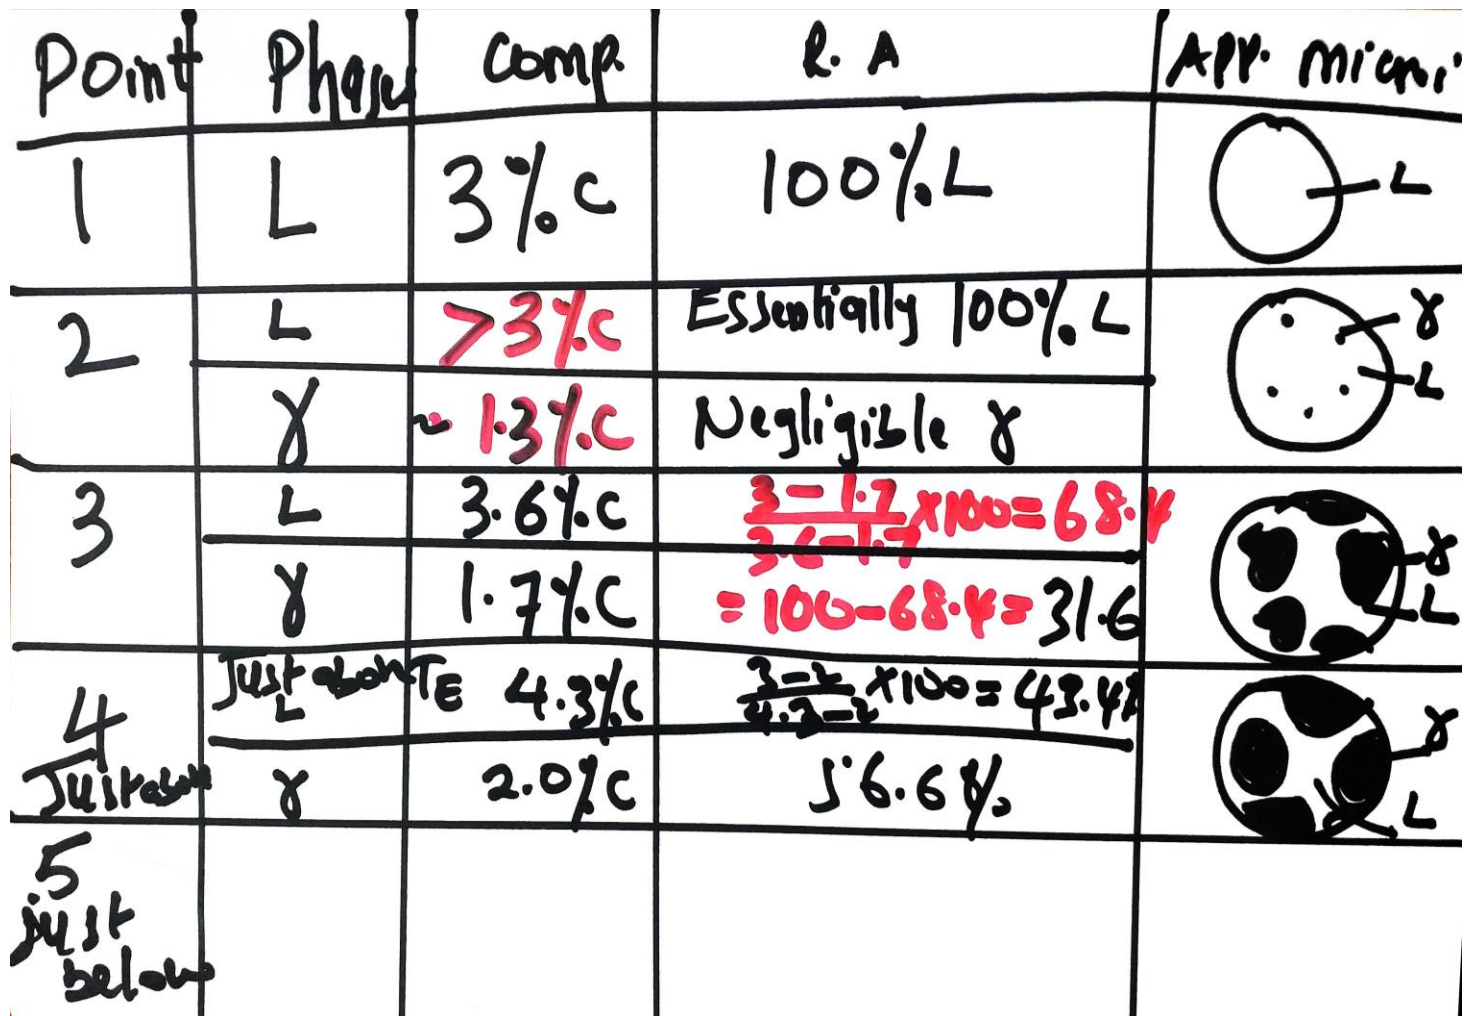 Point Phases Comp. R.A App. micro
1 L 3%.C 100%.L
L
2 L >3%C Essentially 100%.L
γ
L
γ ~1.3%.C Negligible γ
3 L 3.6%C 3-1.7/3.6-1.7 x100=68.4
γ
L
γ 1.7%.C =100-68.4=31.6
4 Just above TE
L 4.3%C 3-2/4.3-2 x100=43.4%
Just above γ 2.0%C 56.6%.
γ
L
5
just
below